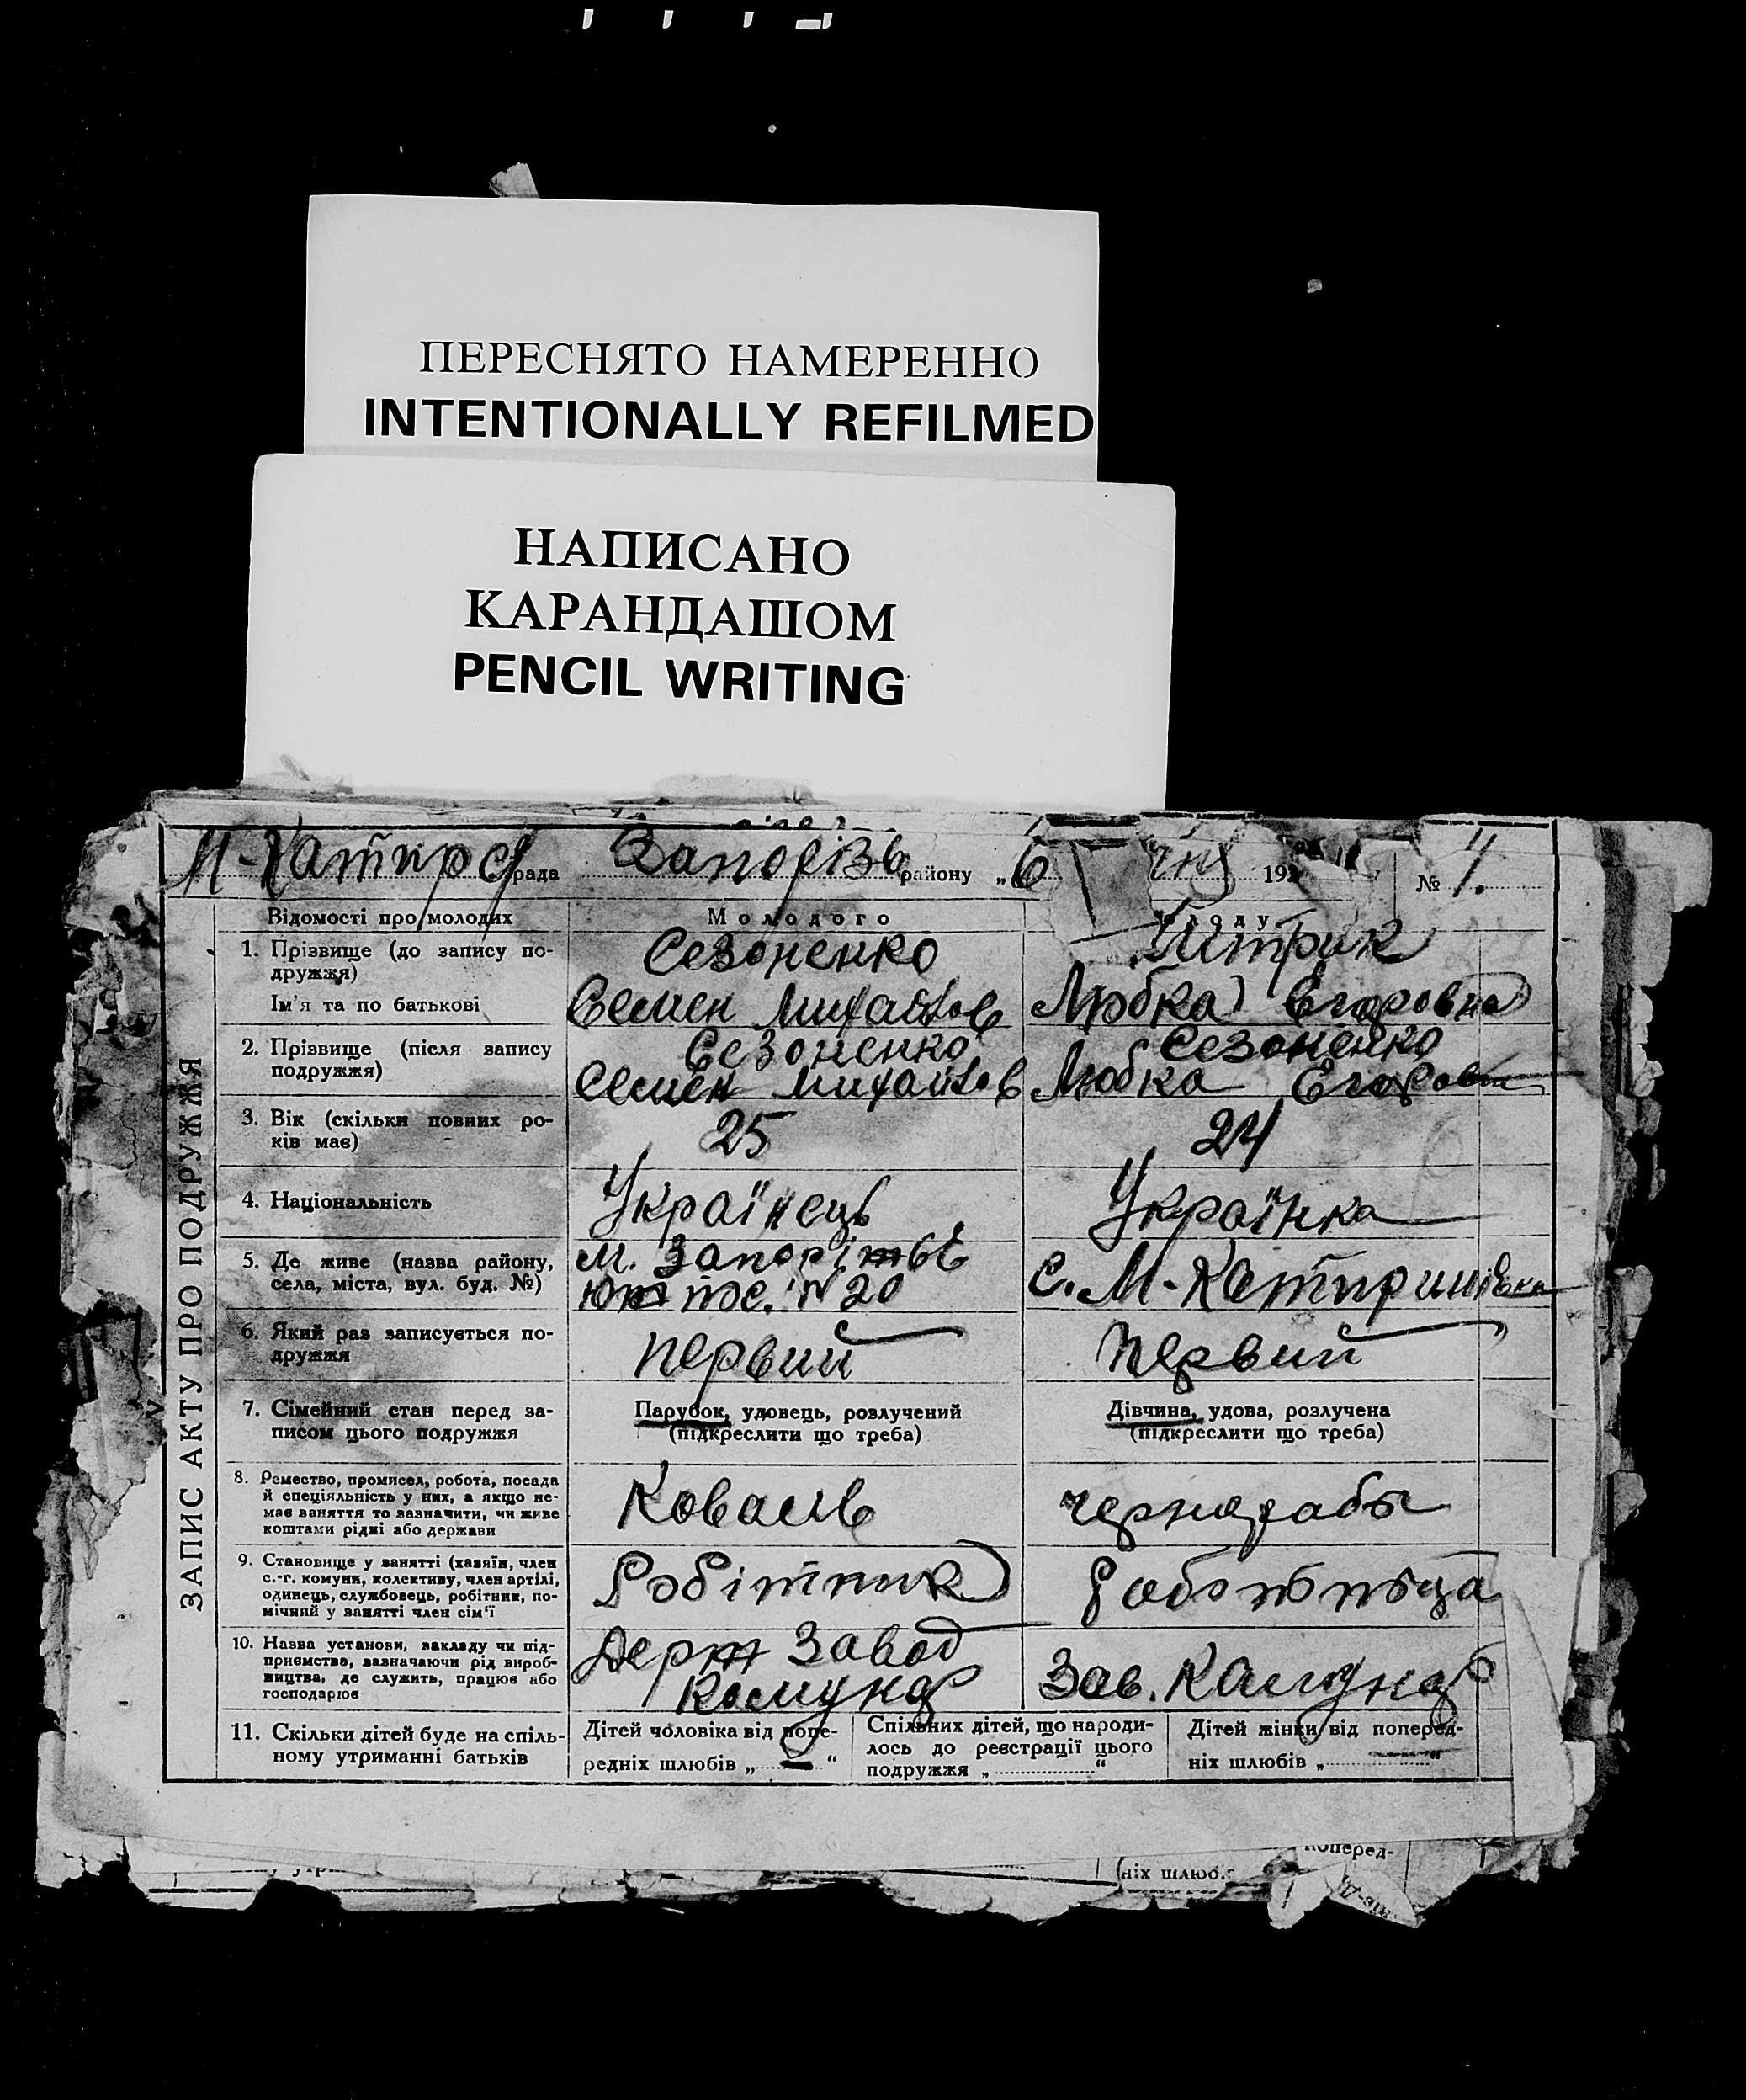 ПЕРЕСНЯТО НАМЕРЕННО
INTENTIONALLY REFILMED
НАПИСАНО
КАРАНДАШОМ
PENCIL WRITING
М-Катир рада Запорізь району „6 чня 192 № 4.
ЗАПИС АКТУ ПРО ПОДРУЖЖЯ
Відомості про молодих
Молодого
1. Прізвище (до запису по-
дружжя)
Ім'я та по батькові
Сезоненко
Семен Михайлов
Штрик
Любка Егоровна
2. Прізвище (після запису
подружжя)
Сезоненко
Семен Михайлов
Сезоненко
Любка Егоровн
3. Вік (скільки повних ро-
ків має)
25
24
4. Національність
Українець
Українка
5. Де живе (назва району,
села, міста, вул. буд. №)
м. Запоріжжє
№ 20
с. М-Катиринівка
6. Який раз записується по-
дружжя
первий
первий
7. Сімейний стан перед за-
писом цього подружжя
Парубок, удовець, розлучений
(підкреслити що треба)
Дівчина, удова, розлучена
(підкреслити що треба)
8. Ремество, промисел, робота, посада
й спеціяльність у них, а якщо не-
має заняття то зазначити, чи живе
коштами рідні або держави
Коваль
чернорабоч
9. Становище у занятті (хазяїн, член
с.-г. комуни, колективу, член артілі,
одинець, службовець, робітник, по-
мічний у занятті член сім'ї
Робітник
работніца
10. Назва установи, закладу чи під-
приємства, зазначаючи рід вироб-
ництва, де служить, працює або
господарює
Держ Завод
Комунар
Зав. Комунар
11. Скільки дітей буде на спіль-
ному утриманні батьків
Дітей чоловіка від попе-
редніх шлюбів „ — “
Спільних дітей, що народи-
лось до реєстрації цього
подружжя „ “
Дітей жінки від поперед-
ніх шлюбів „ — “
поперед-
ніх шлюб